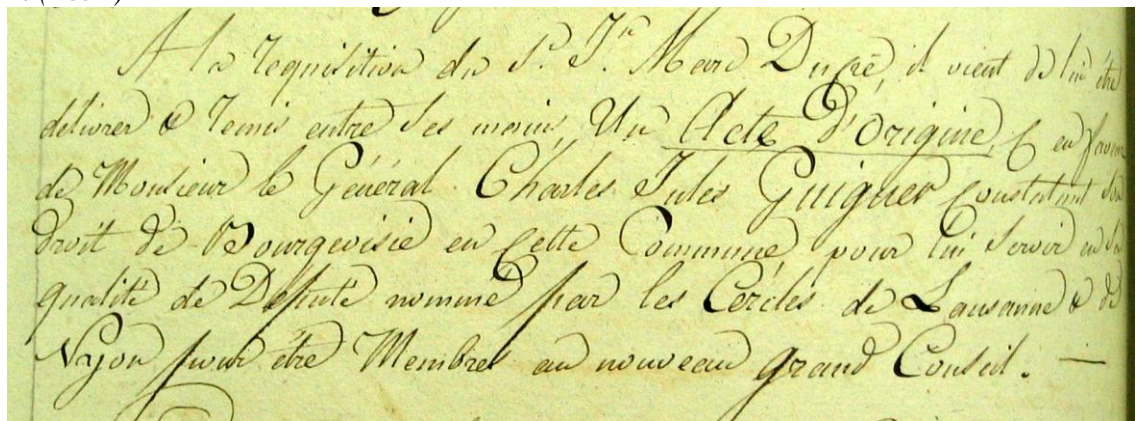 A la Requisition du Sr. Jn. Marc Ducré, il vient de lui être
délivrer & Remis entre ses mains, Un Acte d'Origine, en faveur
de Monsieur le Général Charles Jules Guiguer constatant son
Droit de Bourgeoisie en Cette Commune, pour lui servir en sa
qualité de Député nommé par les Cercles de Lausanne & de
Nyon pour être Membres au nouveau grand Conseil. —